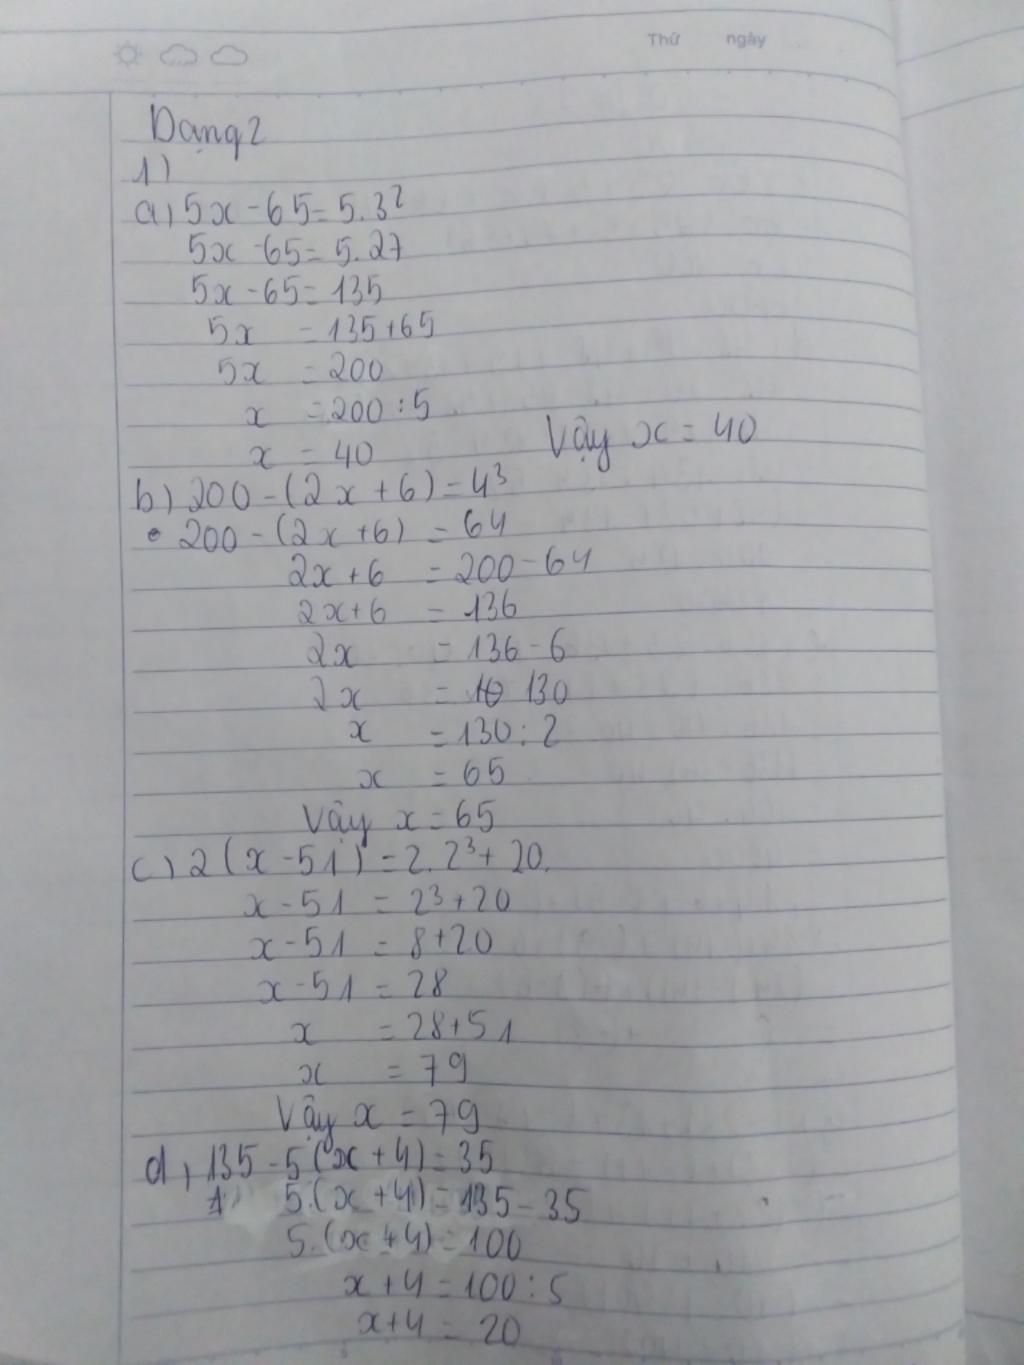 Thứ ngày
Dạng 2
1)
a) 5x - 65 = 5.3²
5x - 65 = 5.27
5x - 65 = 135
5x = 135 + 65
5x = 200
x = 200 : 5
x = 40 Vậy x = 40
b) 200 - (2x + 6) = 4³
200 - (2x + 6) = 64
2x + 6 = 200 - 64
2x + 6 = 136
2x = 136 - 6
2x = 130
x = 130 : 2
x = 65
Vậy x = 65
c) 2(x - 51) = 2.2³ + 20.
x - 51 = 2³ + 20
x - 51 = 8 + 20
x - 51 = 28
x = 28 + 51
x = 79
Vậy x = 79
d, 135 - 5(x + 4) = 35
5.(x + 4) = 135 - 35
5.(x + 4) = 100
x + 4 = 100 : 5
x + 4 = 20